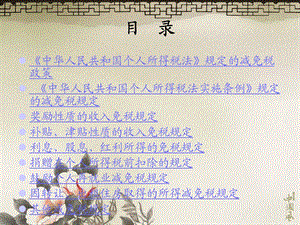 目 录
《中华人民共和国个人所得税法》规定的减免税
政策
《中华人民共和国个人所得税法实施条例》规定
的减免税规定
奖励性质的收入免税规定
补贴、津贴性质的收入免税规定
利息、股息、红利所得的免税规定
捐赠个人所得税前扣除的规定
鼓励个人再就业减免税规定
因转让
住房取得的所得减免税规定